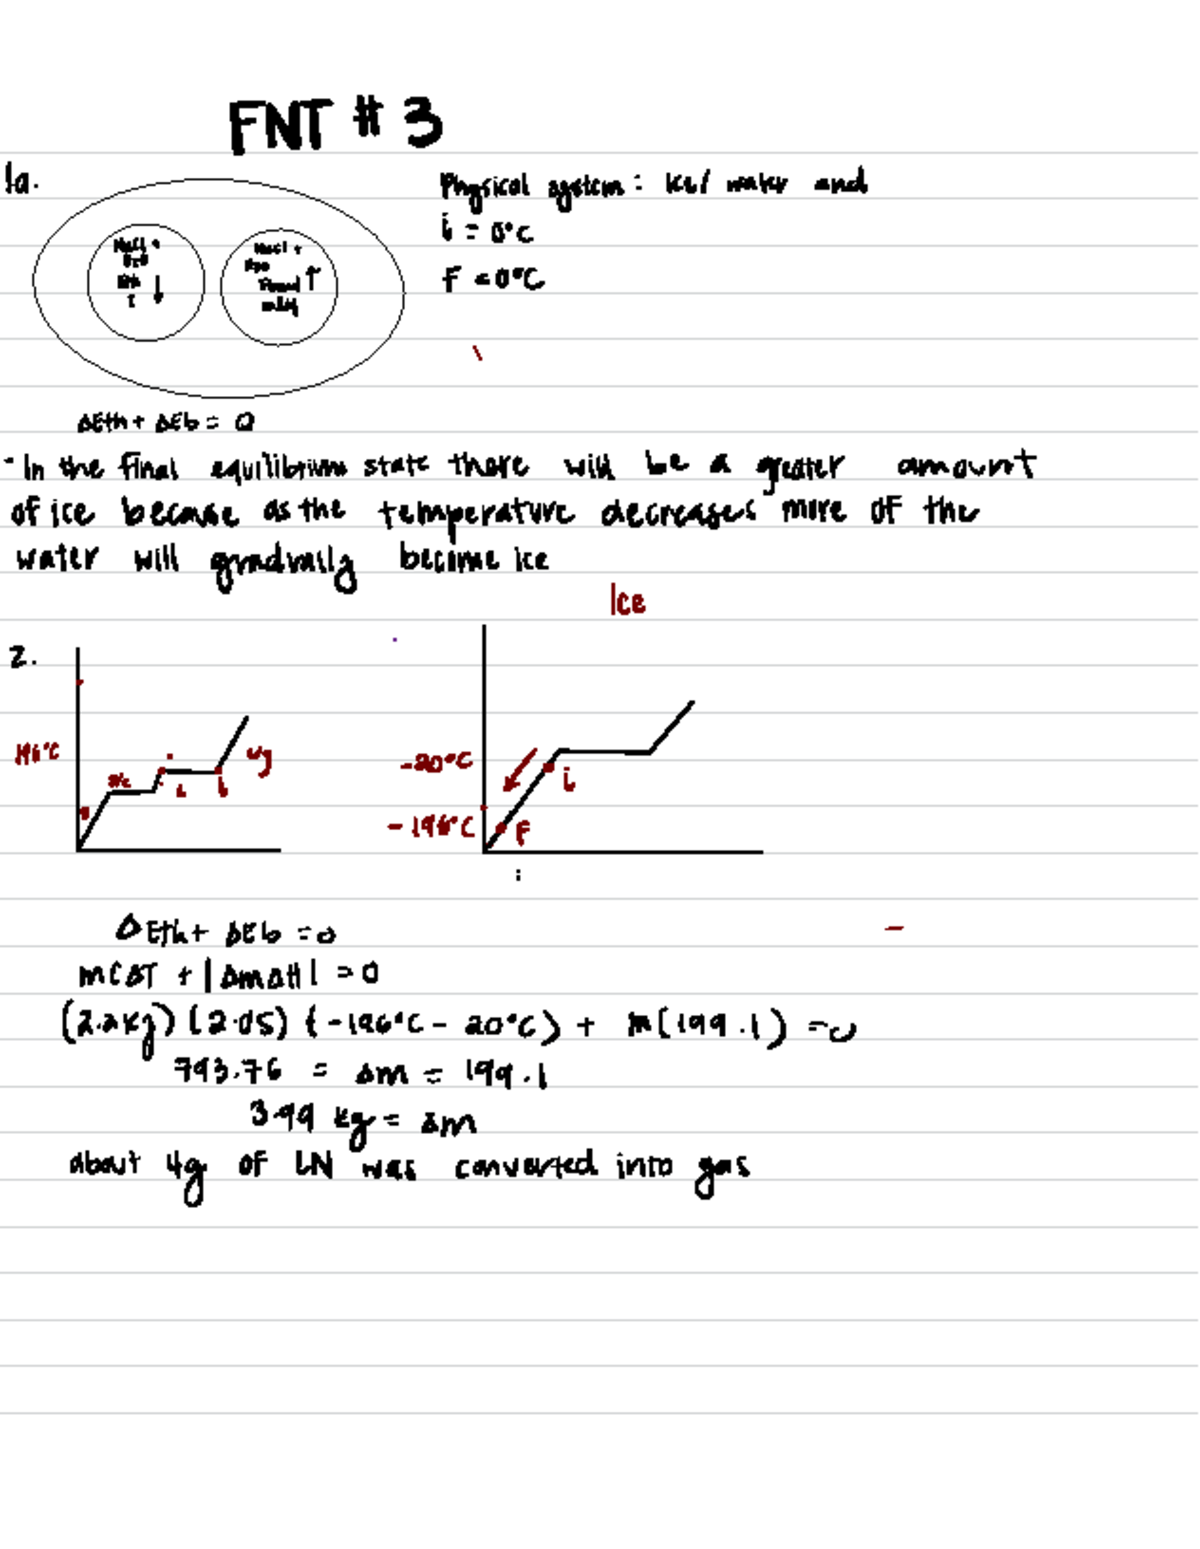 FNT # 3
1a.
Physical system: Ice/ water and
i = 0°C
F = 0°C
NaCl +
H2O
Eth
T ↓
NaCl +
H2O
↑
ΔEth + ΔEb = Q
- In the final equilibrium state there will be a greater amount
of ice because as the temperature decreases more of the
water will gradually become ice
Ice
2.
196°C
i
L
-20°C
i
-196°C
F
ΔEth + ΔEb = 0
mCΔT + |ΔmΔH| = 0
(2.2kg) (2.05) (-196°C - 20°C) + m(199.1) = 0
793.76 = Δm = 199.1
3.99 kg = Δm
about 4g of LN was converted into gas